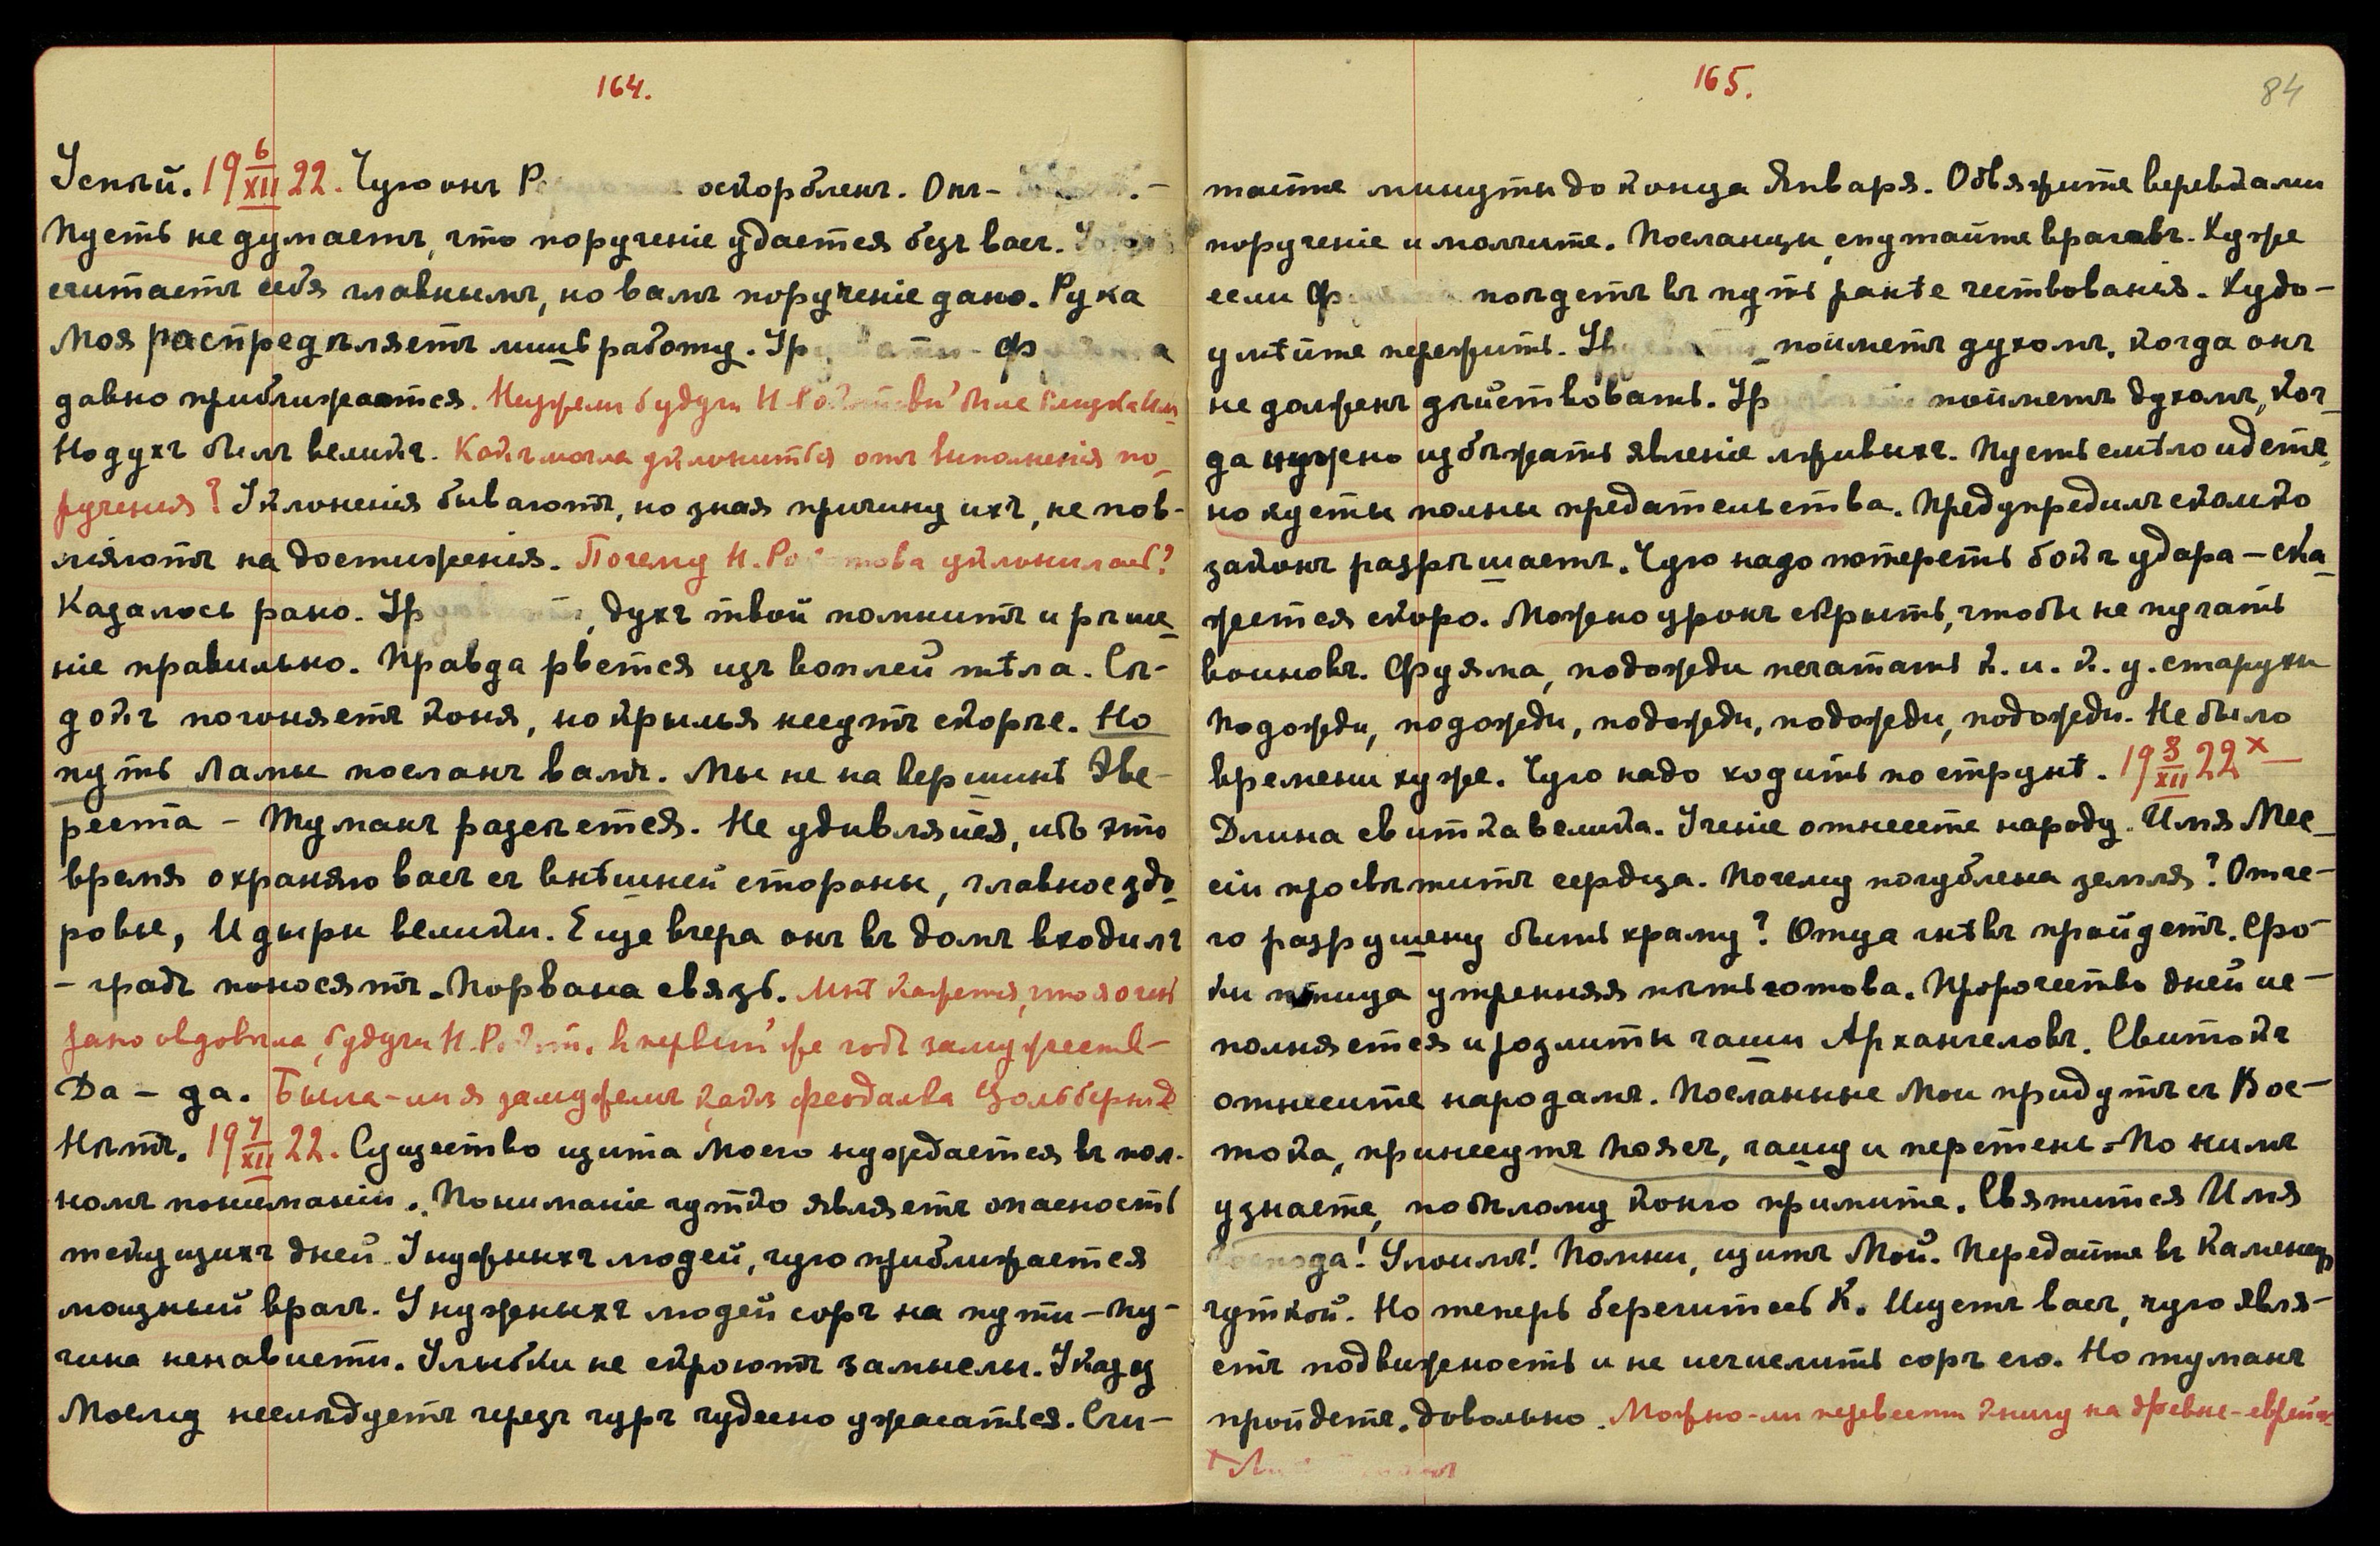 164.
Успѣй. 19 6/XII 22. Чую онъ оскорбленъ. Онъ-
Пусть не думаетъ, что порученіе удается безъ васъ.
считаетъ себя главнымъ, но вамъ порученіе дано. Рука
Моя распредѣляетъ лишь работу.
давно приближается. Неужели будучи Н.
Но духъ былъ великъ. Какъ могла уклониться отъ выполненія по-
рученія? Уклоненія бываютъ, но зная причину ихъ, не пов-
ліяютъ на достиженія. Почему Н. уклонилась?
Казалось рано. духъ твой помнитъ и рѣше-
ніе правильно. Правда рвется изъ воплей тѣла. Сѣ-
докъ погоняетъ коня, но крылья несутъ скорѣе. Но
путь Ламы посланъ вамъ. Мы не на вершинѣ Эве-
реста - Туманъ разсѣется. Не удивляйся, ибо это
время охраняю васъ съ внѣшней стороны, главное здо-
ровье, И дыры велики. Еще вчера онъ въ домъ входилъ
- градъ поносятъ. Порвана связь. Мнѣ кажется, что я очень
рано овдовѣла, будучи Н. въ первый же годъ замужеств-
Да - да. Была-ли я замужемъ за
Нѣтъ. 19 7/XII 22. Существо щита Моего нуждается въ пол-
номъ пониманіи. Пониманіе чутко являетъ опасность
текущихъ дней. У нужныхъ людей, чую приближается
мощный врагъ. У нужныхъ людей соръ на пути - пу-
чина ненависти. Улыбки не скроютъ замыслы. Указу
Моему неслѣдуетъ черезъ чуръ чудесно ужасаться. Счи-
165.
84
тайте минуты до конца Января. Обвяжите веревками
порученіе и молчите. Посланцы, спутайте враговъ. Хуже
если пойдетъ въ путь ранѣе чествованія. Худо-
умѣйте пережить. пойметъ духомъ, когда онъ
не долженъ дѣйствовать. пойметъ духомъ, ког-
да нужно избѣжать явленіе лживыхъ. Пусть смѣло идетъ,
но кусты полны предательства. Предупредилъ сколько
законъ разрѣшаетъ. Чую надо потереть бокъ удара - ска-
жется скоро. Можно уронъ скрыть, чтобы не пугать
воиновъ. Фуяма, подожди печатать к. и. к. у. старухи
Подожди, подожди, подожди, подожди, подожди. Не было
времени хуже. Чую надо ходить по струнѣ. 19 8/XII 22 x
Длина свитка велика. Ученіе отнесете народу. Имя Мес-
сіи просвѣтитъ сердца. Почему погублена земля? Отче-
го разрушену быть храму? Отца гнѣвъ пройдетъ. Сро-
ки птица утренняя пѣть готова. Пророчество дней ис-
полняется и розлиты чаши Архангеловъ. Свитокъ
отнесите народамъ. Посланные Мои придутъ съ Вос-
тока, принесутъ Поясъ, чашу и перстень. По нимъ
узнаете, по бѣлому коню примите. Святится Имя
Господа! Умоимъ! Помни, щитъ Мой. Передайте въ Каменецъ
чуткой. Но теперь берегитесь К. Ищетъ васъ, чую явля-
етъ подвижность и не исчислить соръ его. Но туманъ
пройдетъ. Довольно. Можно-ли перевести книгу на древне-еврейск-